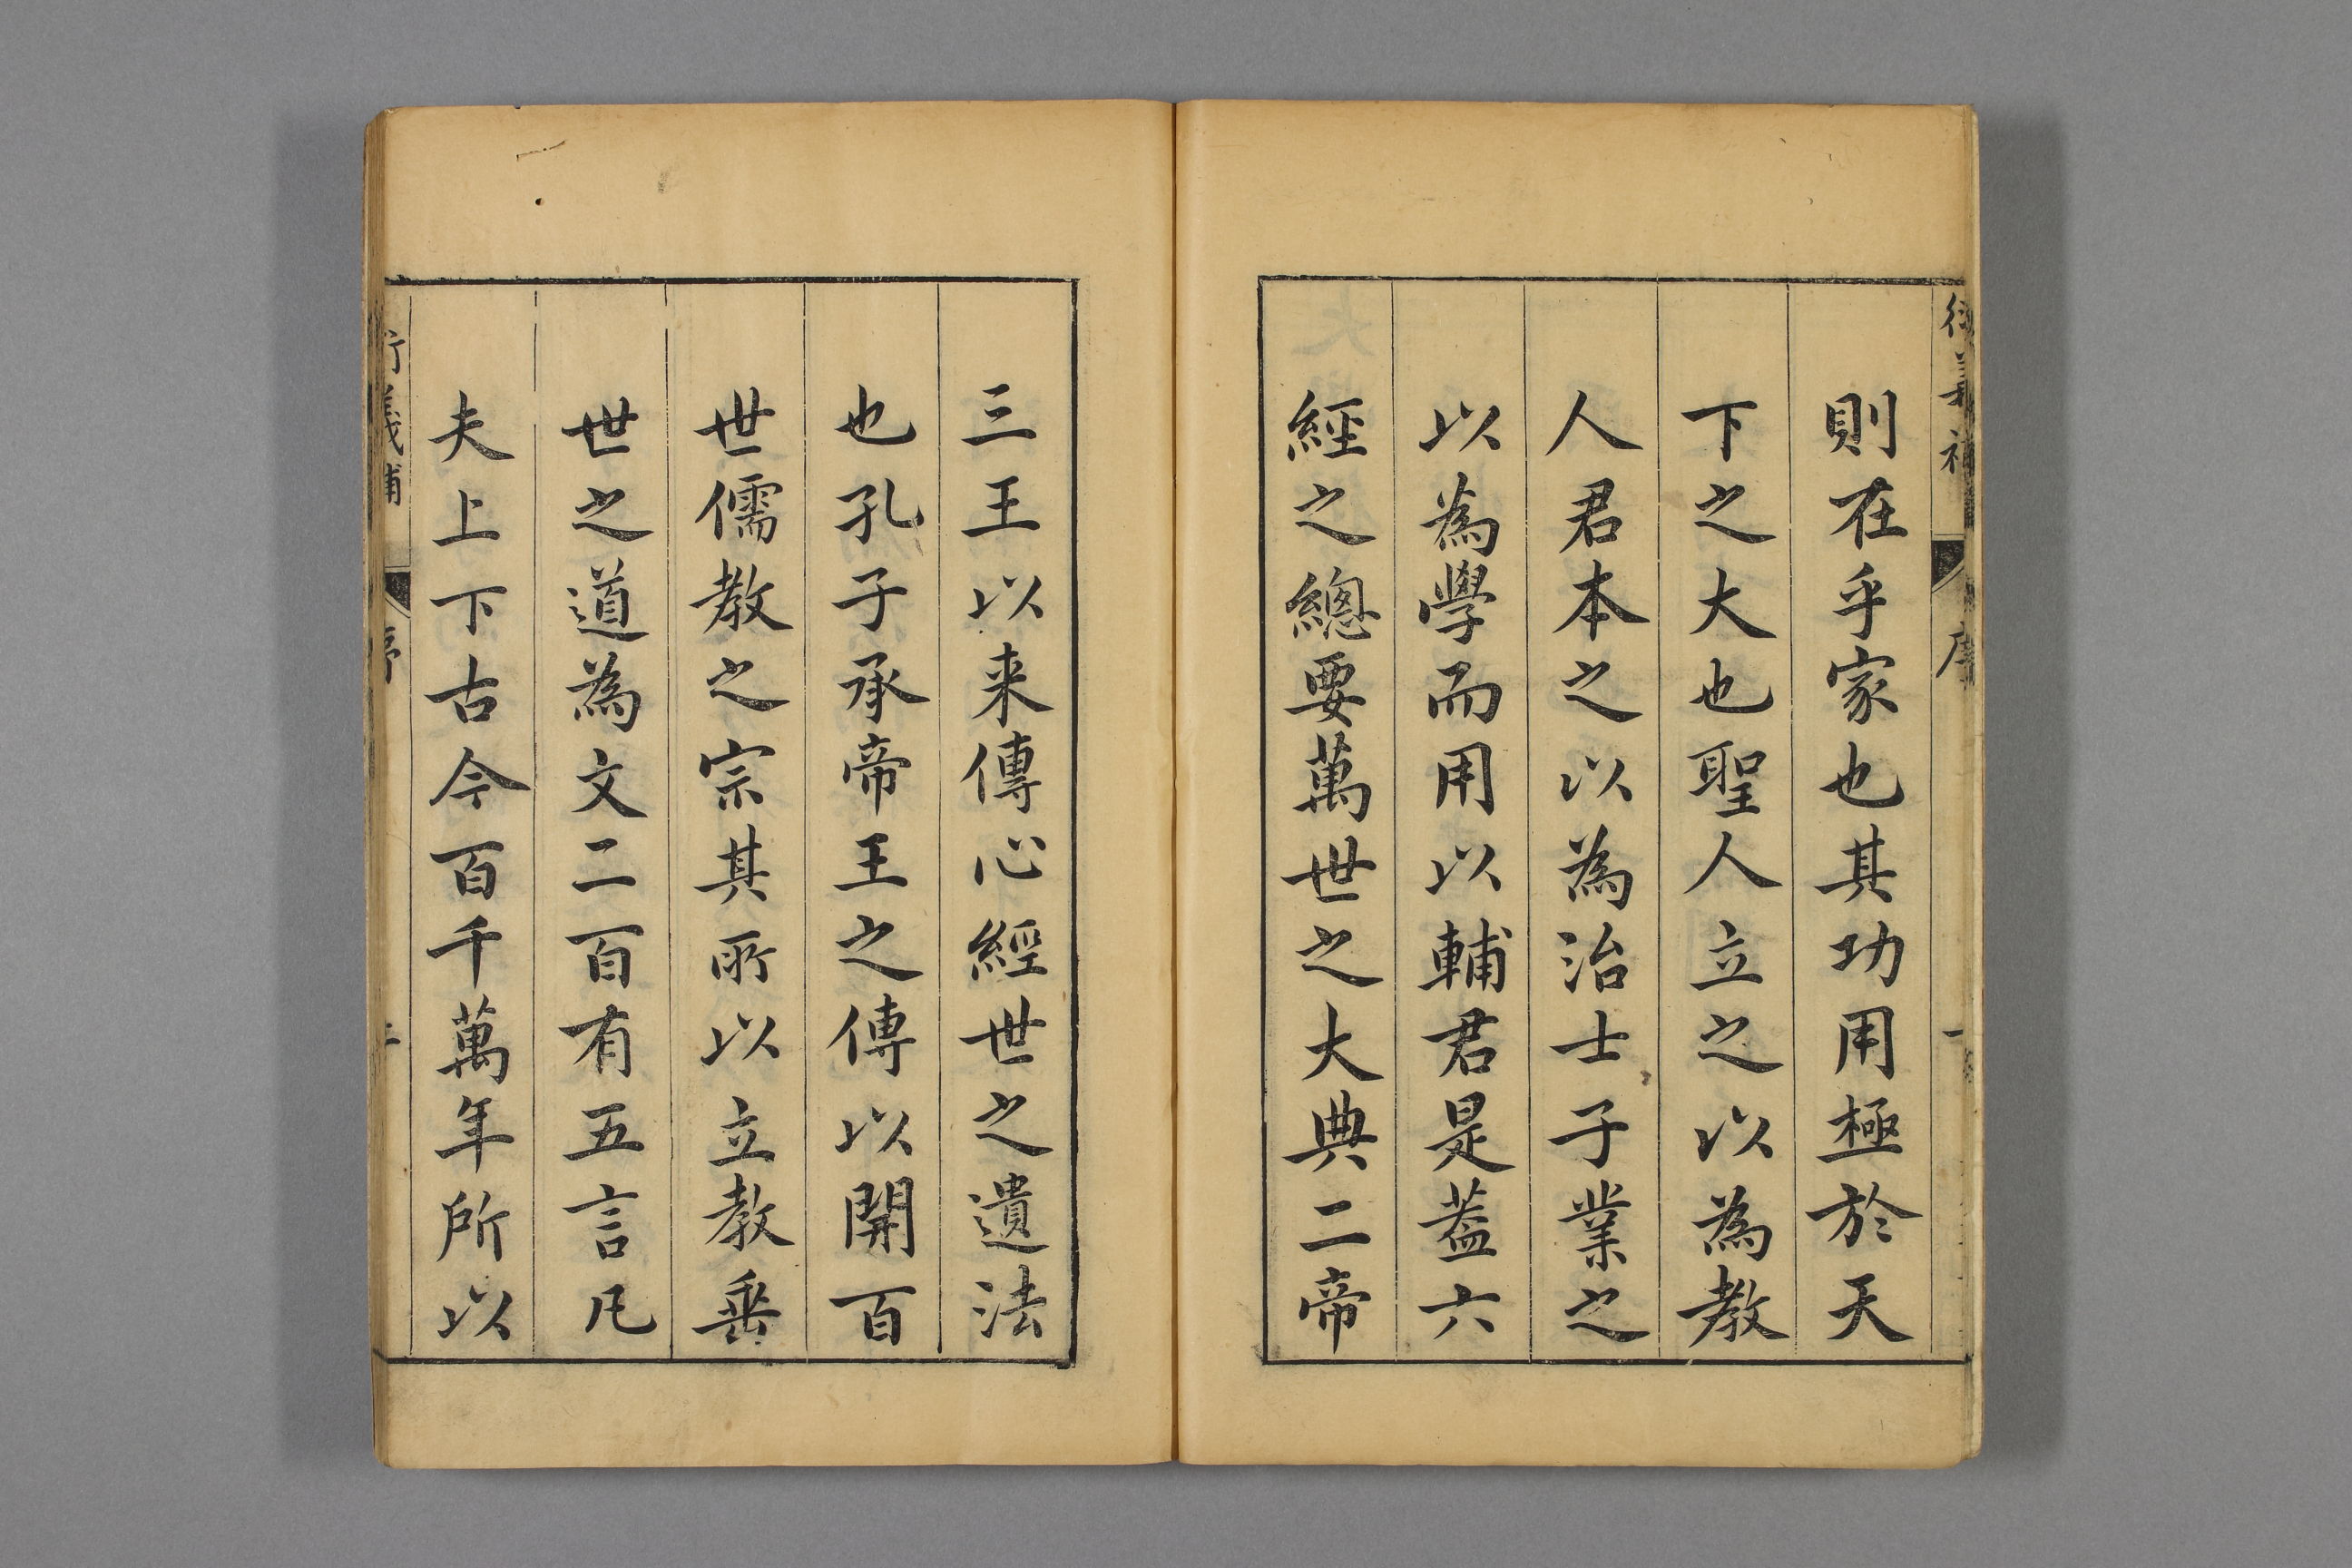 衍義補 序 一
則在乎家也其功用極於天
下之大也聖人立之以為教
人君本之以為治士子業之
以為學而用以輔君是蓋六
經之總要萬世之大典二帝
三王以来傳心經世之遺法
也孔子承帝王之傳以開百
世儒教之宗其所以立教垂
世之道為文二百有五言凡
夫上下古今百千萬年所以
衍義補 序